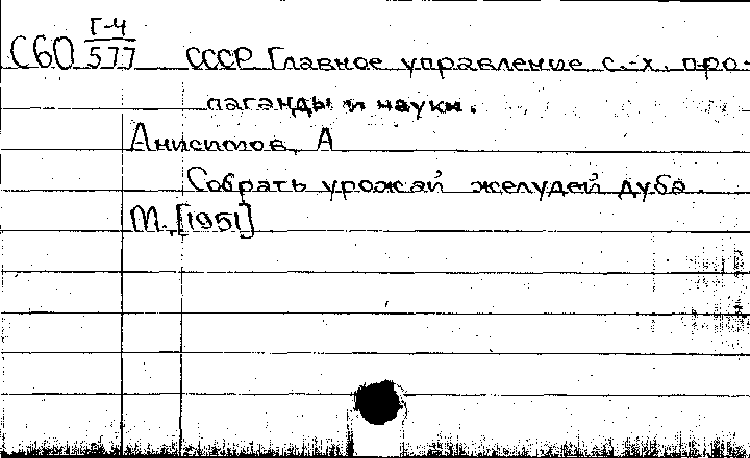 Г-4
С60 577 СССР Главное управление с.-х. про-
паганды и науки.
Анисимов, А
Собрать урожай желудей дуба.
М., [1951]